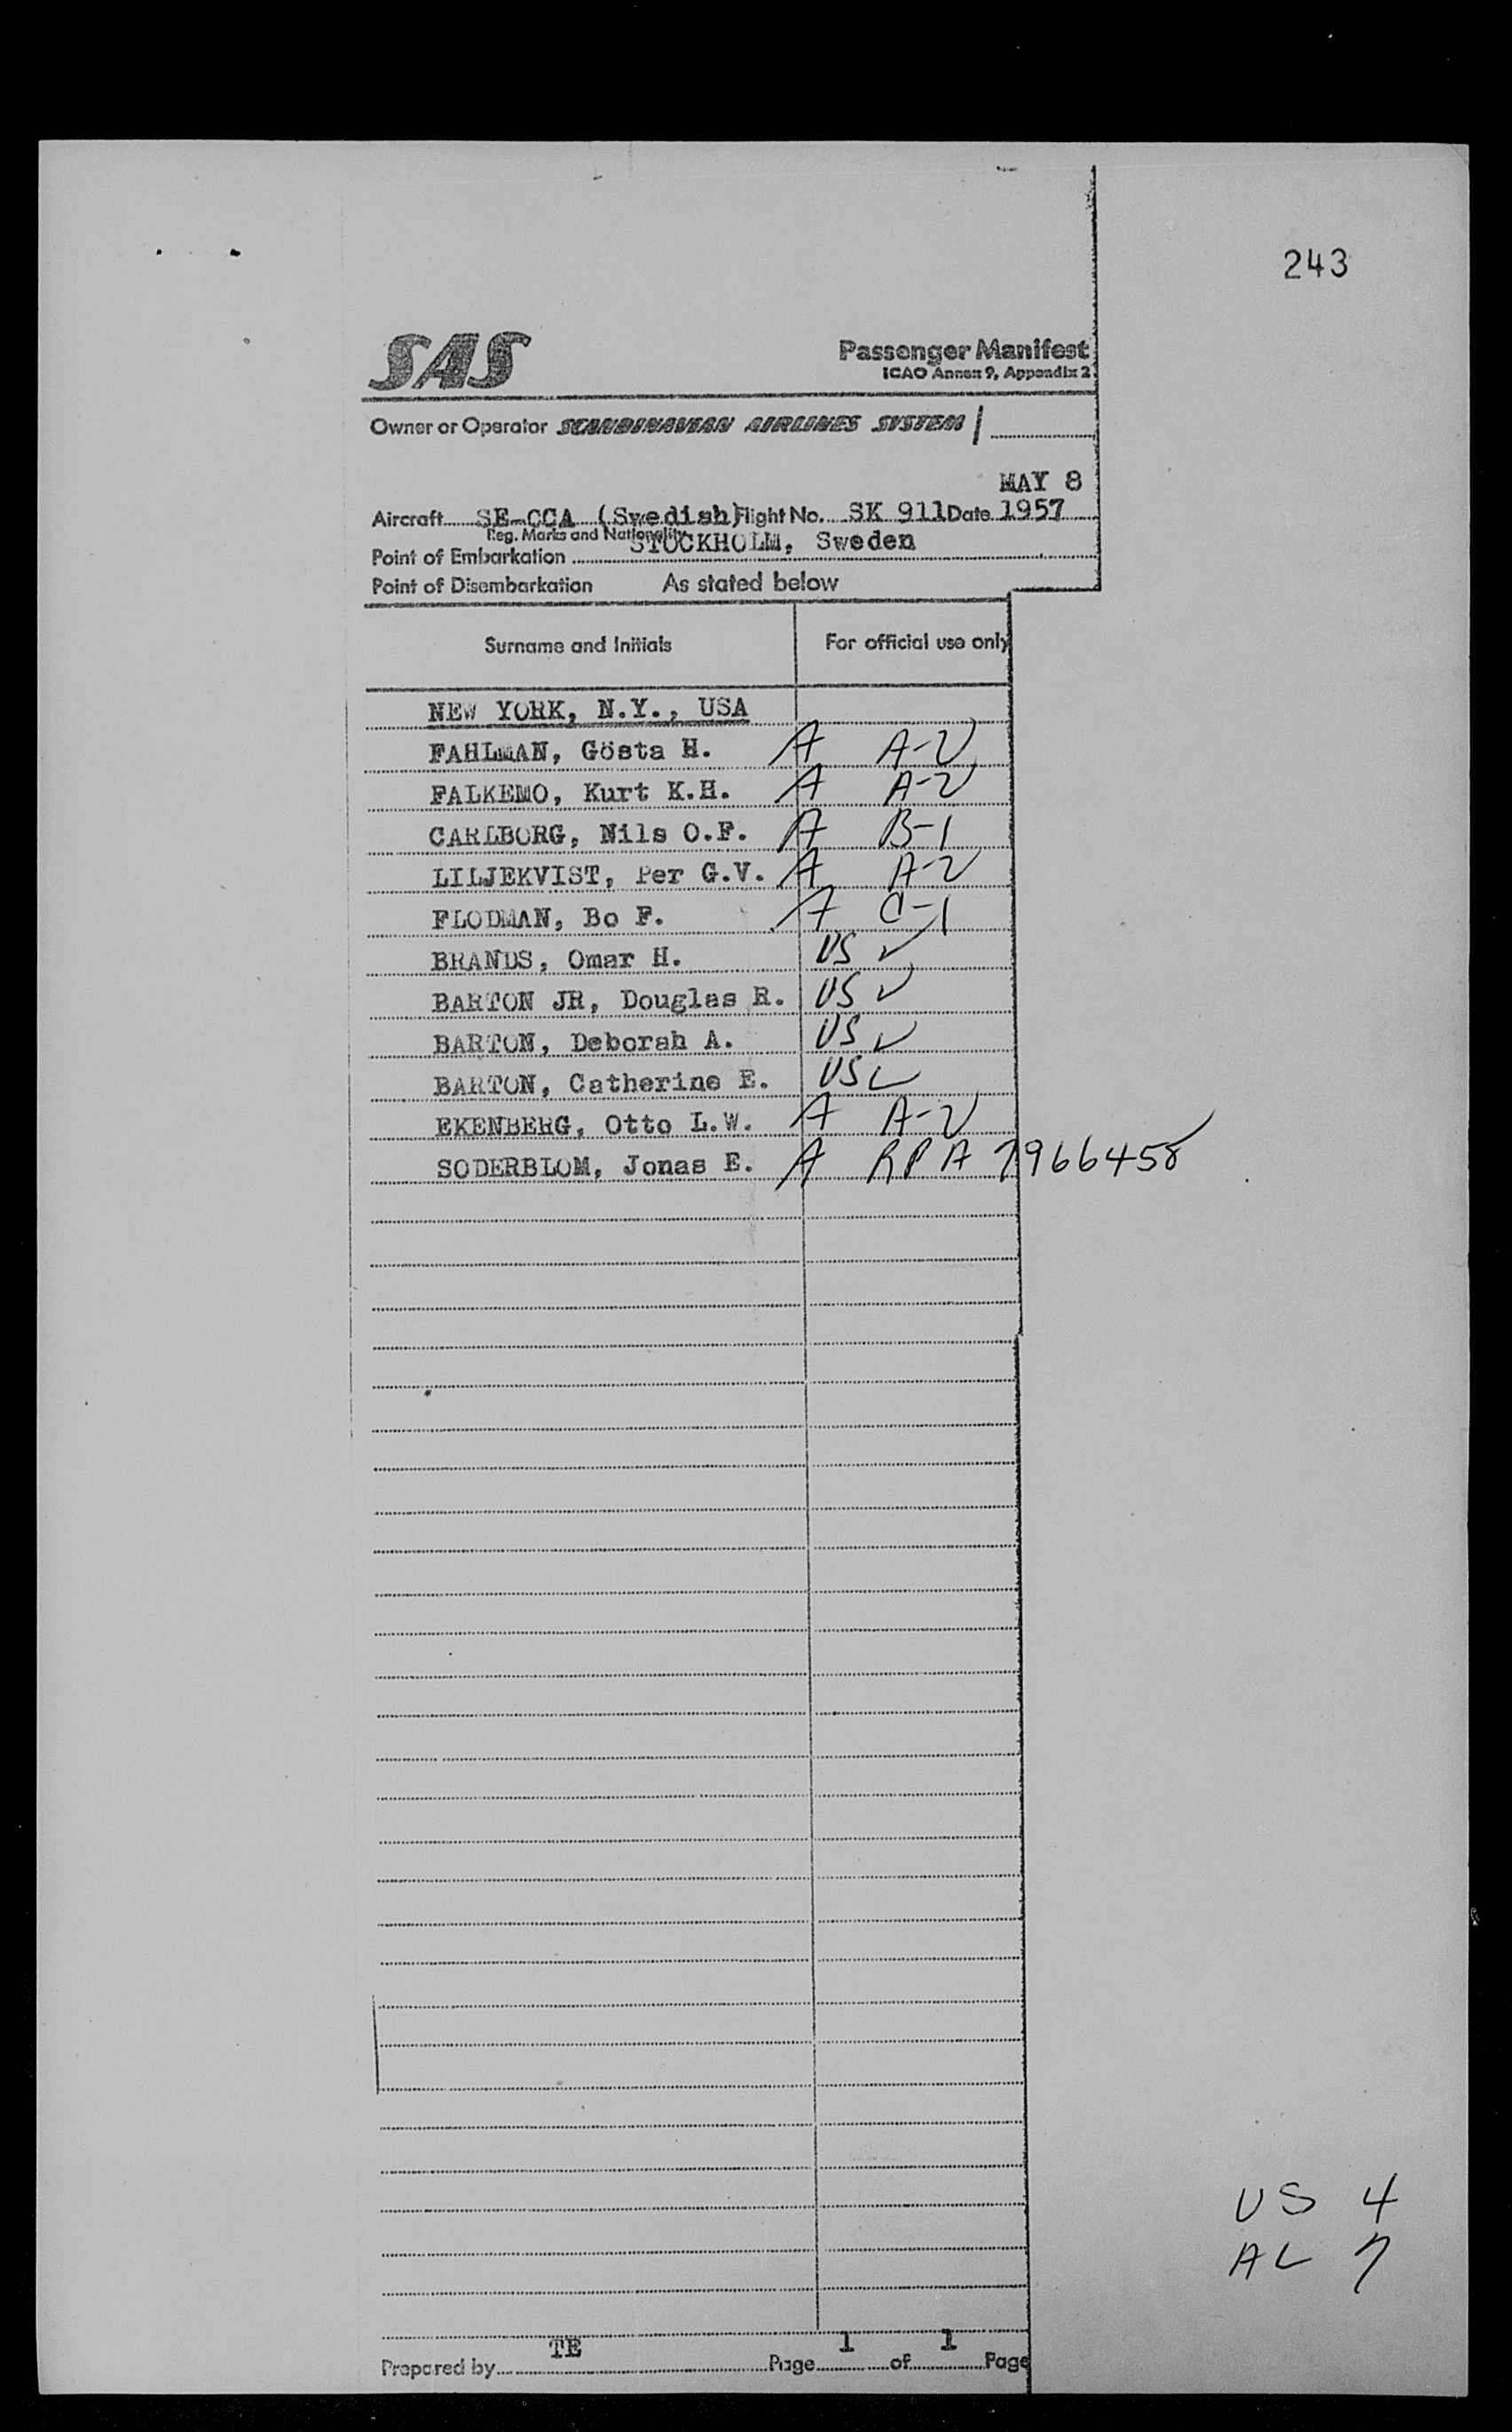 243
SAS
Passenger Manifest
ICAO Annex 9, Appendix 2
Owner or Operator SCANDINAVIAN AIRLINES SYSTEM
MAY 8
Aircraft SE-CCA (Swedish) Flight No. SK 911 Date 1957
Reg. Marks and Nationality
Point of Embarkation STOCKHOLM, Sweden
Point of Disembarkation As stated below
Surname and Initials For official use only
NEW YORK, N.Y., USA
FAHLMAN, Gösta H. A A-2
FALKEMO, Kurt K.H. A A-2
CARLBORG, Nils O.F. A B-1
LILJEKVIST, Per G.V. A A-2
FLODMAN, Bo F. A C-1
BRANDS, Omar H. US ✓
BARTON JR, Douglas R. US ✓
BARTON, Deborah A. US ✓
BARTON, Catherine E. US ✓
EKENBERG, Otto L.W. A A-2
SODERBLOM, Jonas E. A RPA 7966458
US 4
AL 7
Prepared by TE Page 1 of 1 Page